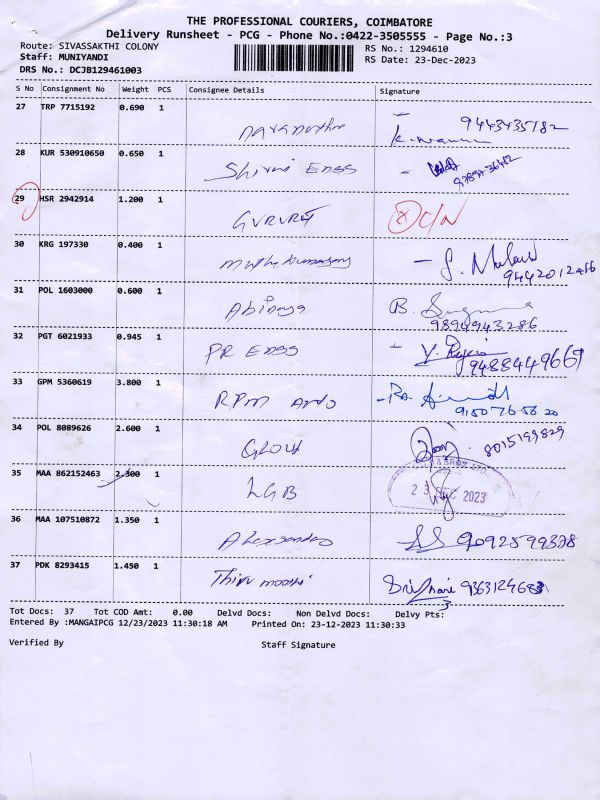 THE PROFESSIONAL COURIERS, COIMBATORE
Delivery Runsheet - PCG - Phone No.:0422-3505555 - Page No.:3
Route: SIVASSAKTHI COLONY RS No.: 1294610
Staff: MUNIYANDI RS Date: 23-Dec-2023
DRS No.: DCJB129461003
S No Consignment No Weight PCS Consignee Details Signature
27 TRP 7715192 0.690 1 9443435182
28 KUR 530910650 0.650 1 Shivani Engs
29 HSR 2942914 1.200 1 GVRVRJ
30 KRG 197330 0.400 1 Muthukumarasamy
9442012416
31 POL 1603000 0.600 1 Abinaya B. Suguna
9894943286
32 PGT 6021933 0.945 1 PR Engs
9488449669
33 GPM 5360619 3.800 1 RPM Auto
34 POL 8089626 2.600 1 8015199829
35 MAA 862152463 2.300 1 LGB
23 DEC 2023
36 MAA 107510872 1.350 1 Alexsander 9092599378
37 PDK 8293415 1.450 1
Tot Docs: 37 Tot COD Amt: 0.00 Delvd Docs: Non Delvd Docs: Delvy Pts:
Entered By :MANGAIPCG 12/23/2023 11:30:18 AM Printed On: 23-12-2023 11:30:33
Verified By Staff Signature